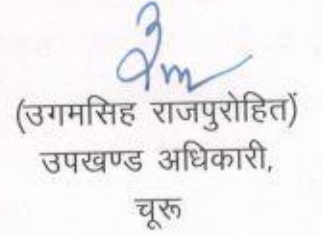 (उगमसिह राजपुरोहित)
उपखण्ड अधिकारी,
चूरू